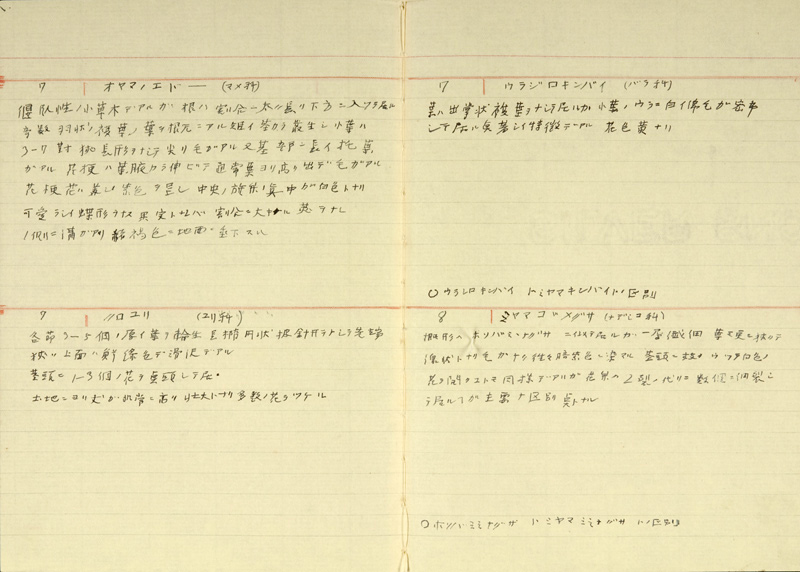 7 オヤマノエドー (マメ科)
偃臥性ノ小草木デアルガ 根ハ 割合ニ太ク長ク下方ニ入ツテ居ル
多数 羽状 複葉ノ葉ヲ根元ニアル短イ茎カラ叢生シ小葉ハ
対 長形ヲナシテ尖リ毛ガアル 又基部ニ長イ托葉
ガアル 花梗ハ葉腋カラ伸ビテ通常葉ヨリ高ク出デ毛ガアル
花梗 紫色ヲ呈シ 中央ノ旗弁ノ真中ガ白色トナリ
可愛ラシイ蝶形ヲナス 果実ト 割合ニ大ナル 莢ヲナシ
ノ側ニ溝ガアリ 褐色ニ地面ニ垂下スル
7 クロユリ (ユリ科)
各節 3-5個ノ厚イ葉ヲ輪生 長楕円状披針形ヲナシテ先端
狭ク上面ハ鮮緑色デ滑沢デアル
茎頭ニ 1-3個ノ花ヲ点頭シテ居。
土地ニヨリ丈ガ非常ニ高ク 壮大トナリ多数ノ花ヲツケル
7 ウラジロキンバイ (バラ科)
葉ハ出掌状複葉ヲナシテ居ルガ小葉ノウラニ白イ綿毛ガ密布
シテ居ルノ著シイ特徴デアル 花色黄ナリ
○ ウラジロキンバイ トミヤマキンバイトノ区別
8 ミヤマゴメグサ (ナデシコ科)
概形ハ ホソバミミナグサ ニ似テ居ルガ一層繊細 葉モ更ニ狭クテ
線状トナリ毛ガナク往々暗紫色ニ染マル 茎頭ニ 白色ノ
花ヲ開クコトモ同様デアルガ 花弁ガ2裂ノ代リニ数個ニ細裂シ
テ居ルノガ主要ナ区別点トナル
○ ホソバミミナグサ トミヤマミミナグサ トノ区別